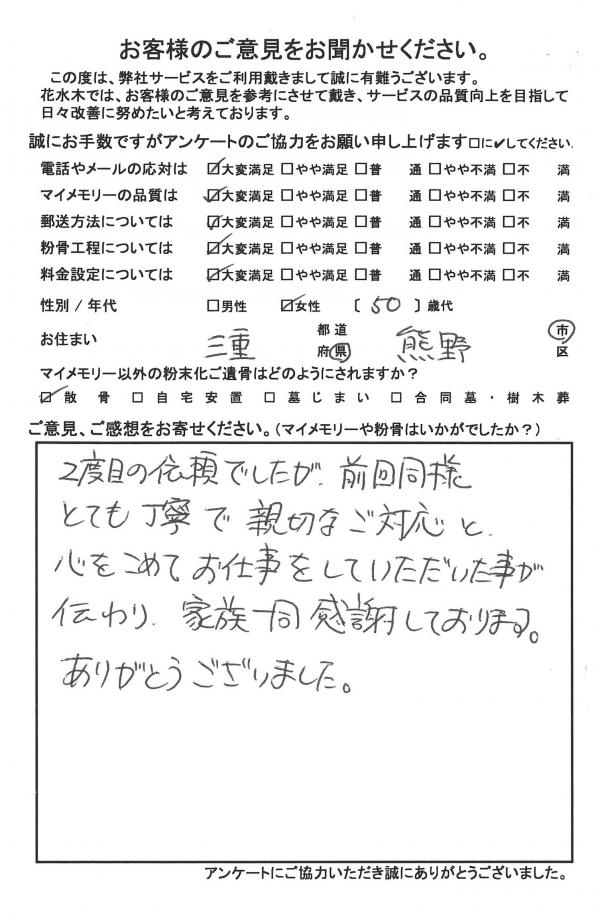 お客様のご意見をお聞かせください。
この度は、弊社サービスをご利用戴きまして誠に有難うございます。
花水木では、お客様のご意見を参考にさせて戴き、サービスの品質向上を目指して
日々改善に努めたいと考えております。
誠にお手数ですがアンケートのご協力をお願い申し上げます□に✔してください。
電話やメールの応対は ☑大変満足 □やや満足 □普 通 □やや不満 □不 満
マイメモリーの品質は ☑大変満足 □やや満足 □普 通 □やや不満 □不 満
郵送方法については ☑大変満足 □やや満足 □普 通 □やや不満 □不 満
粉骨工程については ☑大変満足 □やや満足 □普 通 □やや不満 □不 満
料金設定については ☑大変満足 □やや満足 □普 通 □やや不満 □不 満
性別 / 年代 □男性 ☑女性 〔 50 〕歳代
お住まい 三重 都道府県 熊野 市区
マイメモリー以外の粉末化ご遺骨はどのようにされますか？
☑散骨 □自宅安置 □墓じまい □合同墓・樹木葬
ご意見、ご感想をお寄せください。（マイメモリーや粉骨はいかがでしたか？）
2度目の依頼でしたが、前回同様
とても丁寧で親切なご対応と、
心をこめてお仕事をしていただいた事が
伝わり、家族一同感謝しております。
ありがとうございました。
アンケートにご協力いただき誠にありがとうございました。